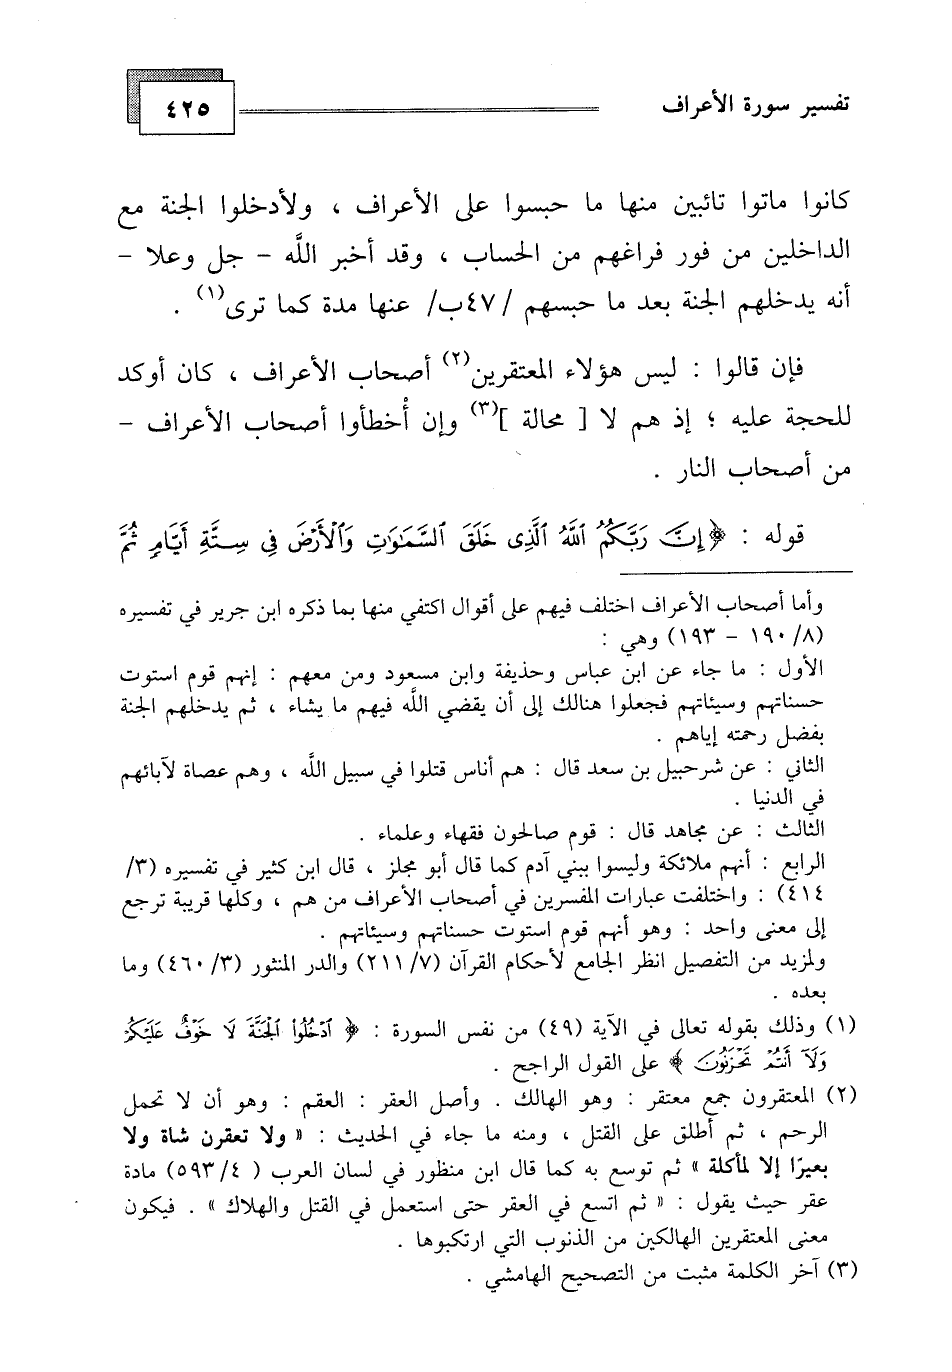 تفسير سورة الأعراف
٤٢٥
كانوا ماتوا تائبين منها ما حبسوا على الأعراف ، ولأدخلوا الجنة مع
الداخلين من فور فراغهم من الحساب ، وقد أخبر اللَّه - جل وعلا -
أنه يدخلهم الجنة بعد ما حبسهم /٤٧ب/ عنها مدة كما ترى(١) .
فإن قالوا : ليس هؤلاء المعتقرين(٢) أصحاب الأعراف ، كان أوكد
للحجة عليه ؛ إذ هم لا [ محالة ](٣) وإن أُخطأوا أصحاب الأعراف -
من أصحاب النار .
قوله : ﴿ إِنَّ رَبَّكُمُ ٱللَّهُ ٱلَّذِى خَلَقَ ٱلسَّمَٰوَٰتِ وَٱلْأَرْضَ فِى سِتَّةِ أَيَّامٍ ثُمَّ
وأما أصحاب الأعراف اختلف فيهم على أقوال اكتفي منها بما ذكره ابن جرير في تفسيره
(٨/ ١٩٠ - ١٩٣) وهي :
الأول : ما جاء عن ابن عباس وحذيفة وابن مسعود ومن معهم : إنهم قوم استوت
حسناتهم وسيئاتهم فجعلوا هنالك إلى أن يقضي اللَّه فيهم ما يشاء ، ثم يدخلهم الجنة
بفضل رحمته إياهم .
الثاني : عن شرحبيل بن سعد قال : هم أناس قتلوا في سبيل اللَّه ، وهم عصاة لآبائهم
في الدنيا .
الثالث : عن مجاهد قال : قوم صالحون فقهاء وعلماء .
الرابع : أنهم ملائكة وليسوا ببني آدم كما قال أبو مجلز ، قال ابن كثير في تفسيره (٣/
٤١٤) : واختلفت عبارات المفسرين في أصحاب الأعراف من هم ، وكلها قريبة ترجع
إلى معنى واحد : وهو أنهم قوم استوت حسناتهم وسيئاتهم .
ولمزيد من التفصيل انظر الجامع لأحكام القرآن (٧/ ٢١١) والدر المنثور (٣/ ٤٦٠) وما
بعده .
(١) وذلك بقوله تعالى في الآية (٤٩) من نفس السورة : ﴿ ٱدْخُلُوا۟ ٱلْجَنَّةَ لَا خَوْفٌ عَلَيْكُمْ
وَلَآ أَنتُمْ تَحْزَنُونَ ﴾ على القول الراجح .
(٢) المعتقرون جمع معتقر : وهو الهالك . وأصل العقر : العقم : وهو أن لا تحمل
الرحم ، ثم أطلق على القتل ، ومنه ما جاء في الحديث : « ولا تعقرن شاة ولا
بعيرًا إلا لمأكلة » ثم توسع به كما قال ابن منظور في لسان العرب ( ٤/ ٥٩٣) مادة
عقر حيث يقول : « ثم اتسع في العقر حتى استعمل في القتل والهلاك » . فيكون
معنى المعتقرين الهالكين من الذنوب التي ارتكبوها .
(٣) آخر الكلمة مثبت من التصحيح الهامشي .